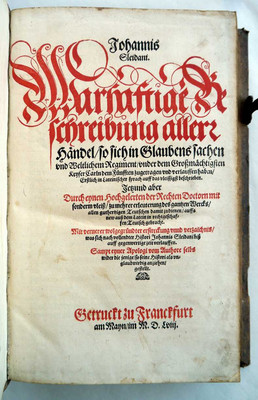 Johannis
Sleidani.
Warhafftige Be
schreibung aller
Händel / so sich in Glaubens sachen
vnd Weltlichem Regiment / vnder dem Großmächtigsten
Keyser Carln dem Fünfften zugetragen vnd verlauffen haben /
Erstlich in Lateinischer sprach auff das fleissigst beschriben.
Jetzund aber
Durch eynen Hochgelerten der Rechten Doctorn mit
sonderm vleiß / zu mehrer erleuterung des gantzen Wercks /
allen gutherzigen Teutschen damit zudienen / auffs
new auß dem Latein in
Teutsch gebracht.
Mit
was sich nach vollendter Histori Johannis Sleidani biß
auff gegenwertige zeit verlauffen.
Sampt eyner Apologi vom Authore selbs
wider die jenige so seine Histori als
anziehen /
gestellt.
Getruckt zu Franckfurt
am Mayn / im M. D. Lviij.